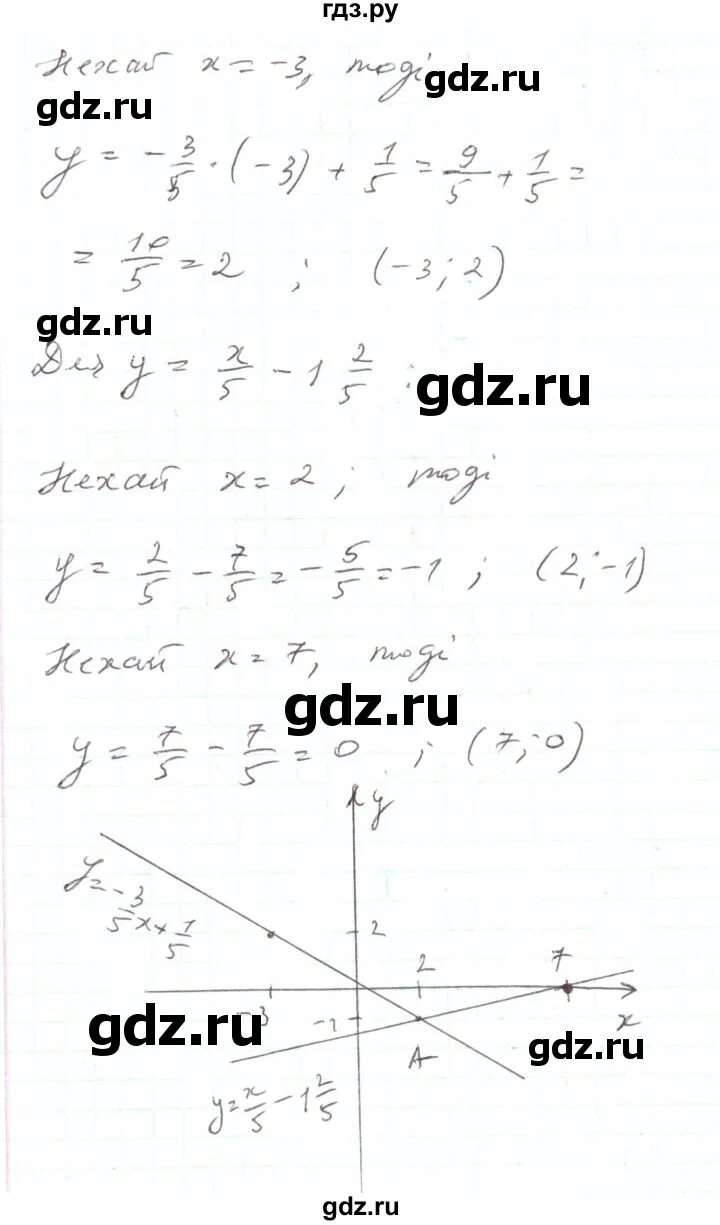 гдз.ру
Нехай x = -3, тоді
gdz.ru
gdz.ru
y = -3/5 · (-3) + 1/5 = 9/5 + 1/5 =
= 10/5 = 2 ; (-3; 2)
gdz.ru
Для y = x/5 - 1 2/5 :
gdz.ru
Нехай x = 2 ; тоді
y = 2/5 - 7/5 = -5/5 = -1 ; (2; -1)
Нехай x = 7, тоді
gdz.ru
y = 7/5 - 7/5 = 0 ; (7; 0)
y
y = -3/5 x + 1/5
2
2 7
-3 -1 x
gdz.ru
gdz.ru
A
y = x/5 - 1 2/5
gdz.ru